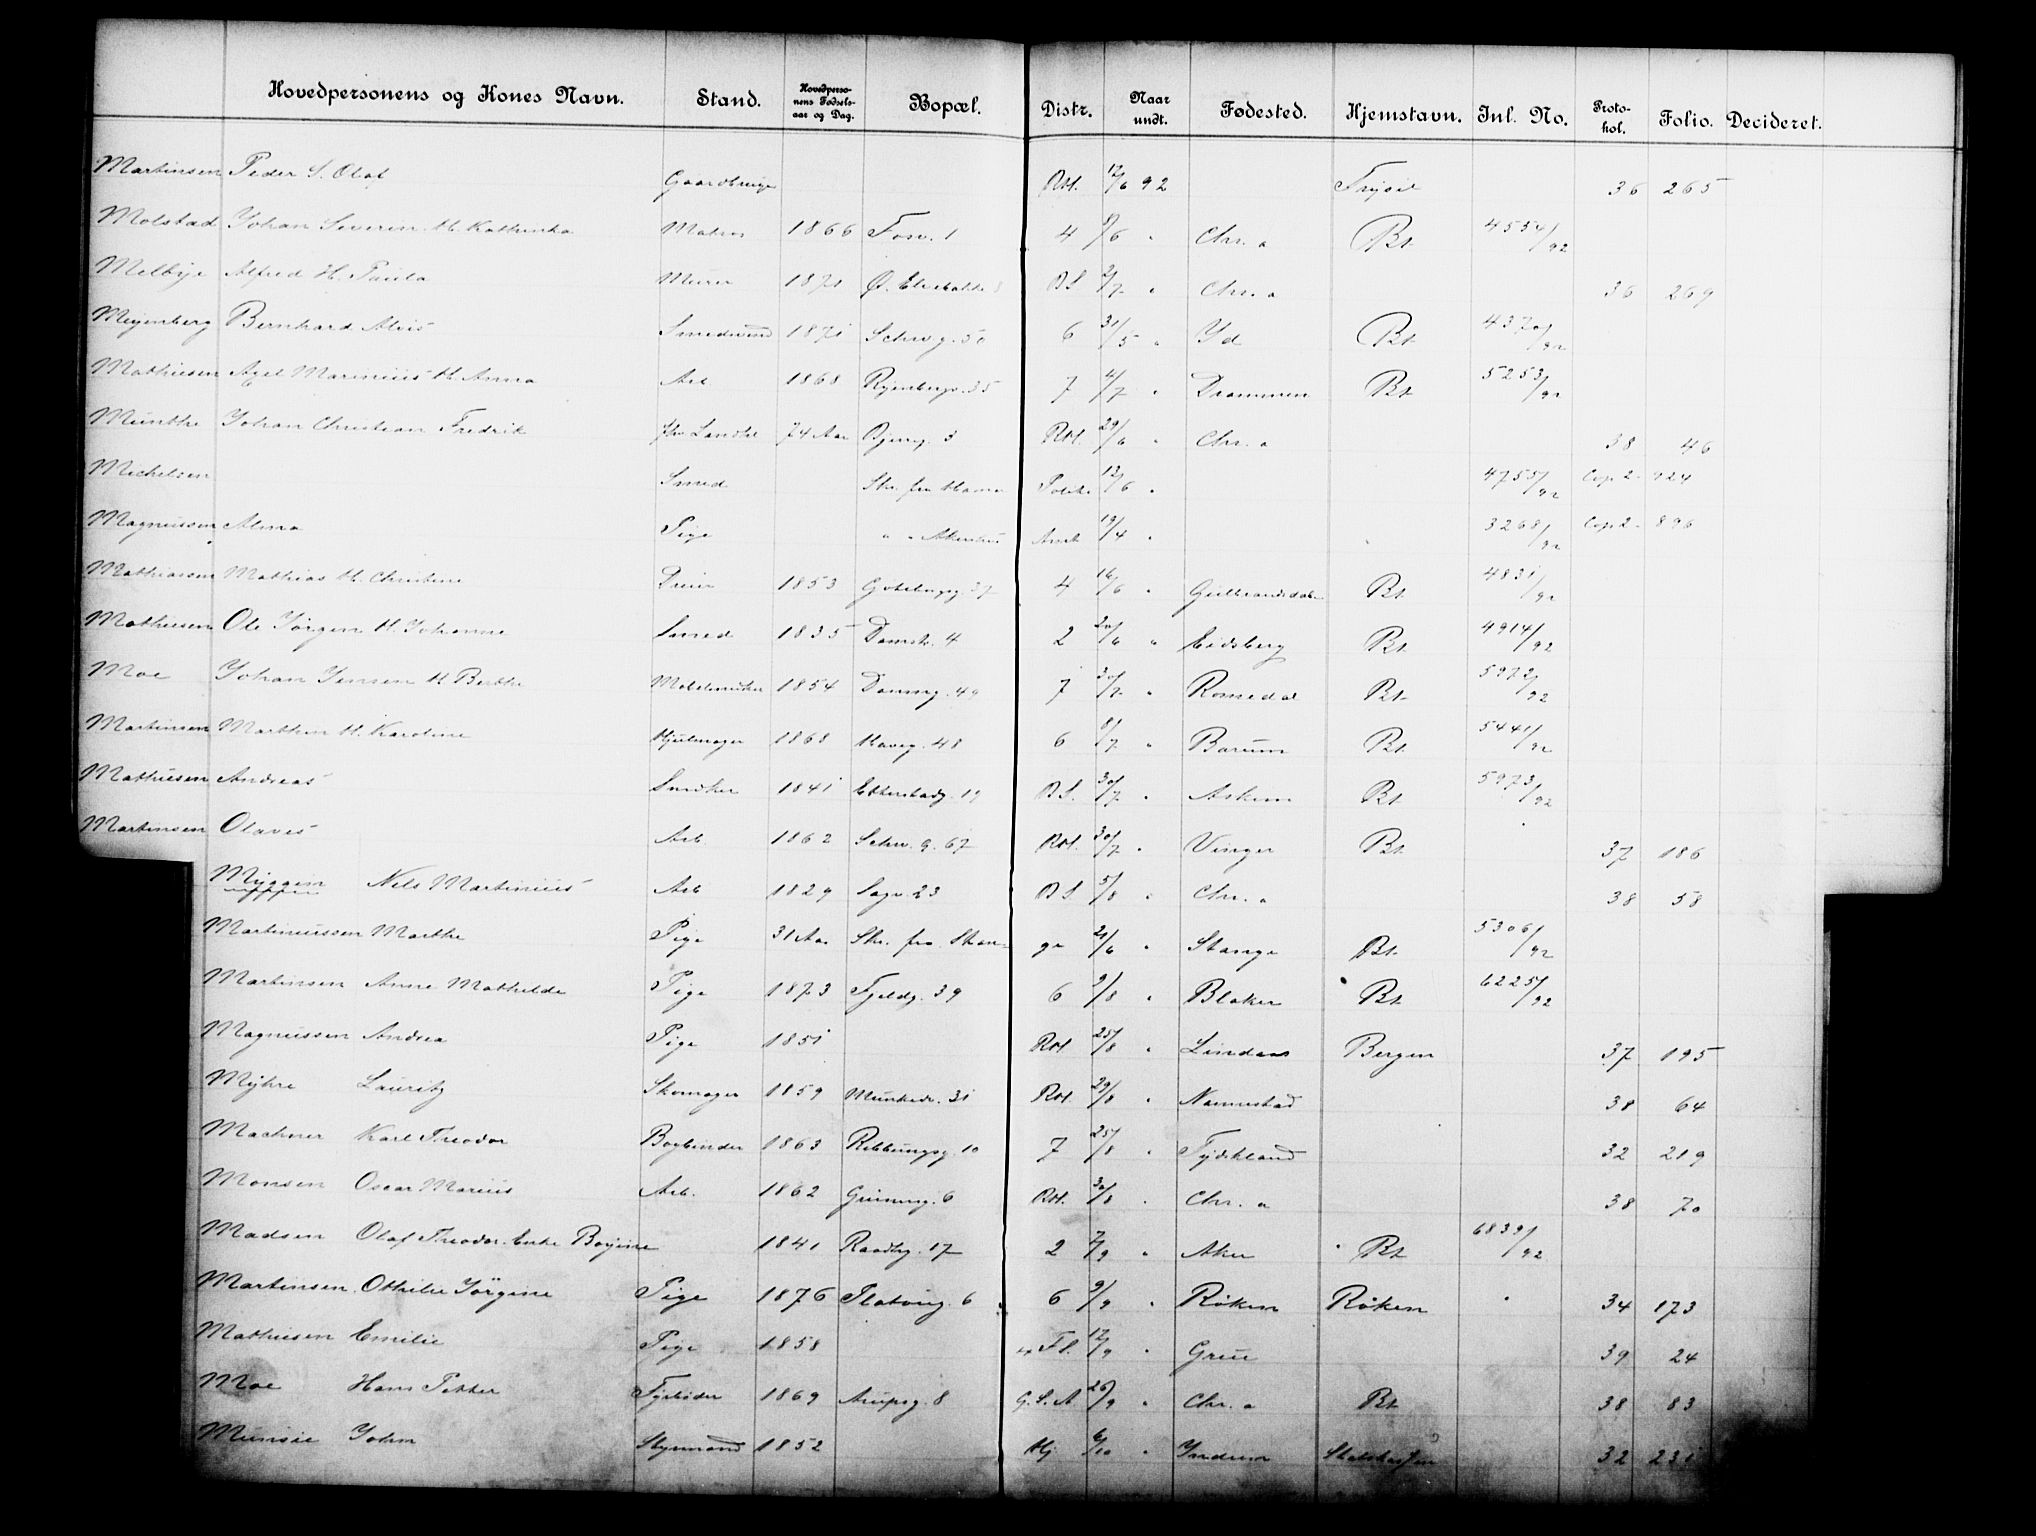 Hovedpersonens og Kones Navn. Stand. Hovedpersonens Fødselsaar og Dag. Bopæl. Distr. Naar undt. Fødested. Hjemstavn. Inl. No. Protokol. Folio. Decideret.
Martinsen Peder S. Olaf Gaardbruger Rtl. 12/6 92 Trysil 36 265
Molstad Johan Severin H. Kathinka Matros 1866 Fosv. 1 4 8/6 " Chr. a Bt 4554/92
Melbye Alfred H. Paula Murer 1871 Ø. Elvebakke 8 B S 2/7 " Chr. a 36 269
Meyenberg Bernhard Alvis Smedsvend 1871 Schwg. 50 6 31/5 " Id Bt 4370/92
Mathiesen Axel Marinius H. Anna Arb 1868 Ryenbergs. 35 7 4/7 " Drammen Bt 5253/92
Munthe Johan Christian Fredrik fhv Landh. 74 Aar Bjerg. 3 Rtl. 29/6 " Chr. a 38 46
Michelsen Smed Skr. fra Hamar Politi 13/6 " 4755/92 Cop 2 - 924
Magnussen Alma Pige " " Akershus Amt 19/4 " 3268/92 Cop 2 - 896
Mathiassen Mathias H. Christine Dreier 1853 Gøteborgg. 37 4 16/6 " Gudbrandsdalen Bt 4831/92
Mathiesen Ole Jørgen H. Johanne Smed 1835 Damstr. 4 2 20/6 " Eidsberg Bt 4914/92
Moe Johan Jensen H. Berthe Møbelsnedker 1854 Dannevg. 49 7 30/7 " Romedal Bt 5972/92
Martinsen Marthin H. Karoline Hjulmager 1868 Maveg. 48 6 8/7 " Barum Bt 5441/92
Mathiesen Andreas Snedker 1841 Etterstadg. 19 B S. 30/7 " Askim Bt 5973/92
Martinsen Olaves Arb. 1862 Schw. g. 67 Rtl. 30/7 " Vinger Bt 37 186
Myggen Nils Martinius Arb 1829 Sagv. 23 B S 5/8 " Chr. a 38 58
Martiniussen Marthe Pige 31 Aar Skr. fra Stange 21/6 " Stange Bt. 5306/92
Martinsen Anne Mathilde Pige 1873 Fjeldg. 39 6 9/8 " Blaker Bt 6225/92
Magnussen Andrea Pige 1851 Rtl 25/8 " Lindaas Bergen 37 195
Myhre Lauritz Skomager 1859 Munkedr. 31 Rtl. 29/8 " Nannestad 38 64
Machner Karl Theodor Bogbinder 1863 Ribbungsg. 10 7 25/8 " Tydskland 32 219
Monsen Oscar Marius Arb. 1862 Grünerg. 6 Rtl. 30/8 " Chr. a 38 70
Madsen Olaf Theodor. Enke 1841 Raadhg. 17 2 7/9 " Aker Bt 6839/92
Martinsen Othilie Jørgine Pige 1876 Platoug. 6 6 9/9 " Røken Røken 34 173
Mathiesen Emilie Pige 1858 F S. 12/9 " Grue 39 24
Moe Hans Petter Fyrbøder 1869 Arupsg. 8 G. S. A 26/9 " Chr. a Bt 38 83
Munsie John Styrmand 1852 Hj 6/10 " 32 231